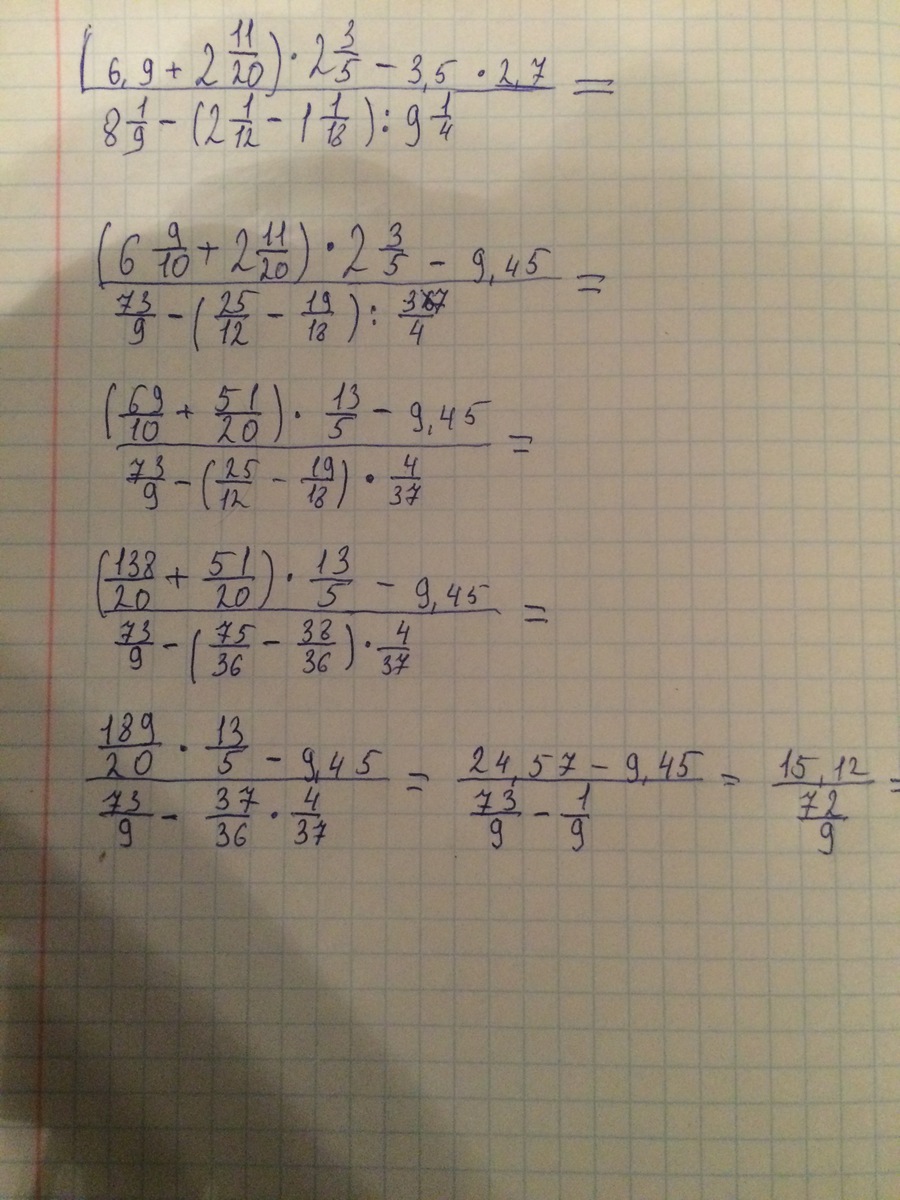 (6,9 + 2 11/20) · 2 3/5 − 3,5 · 2,7 =
8 1/9 − (2 1/12 − 1 1/18) : 9 1/4
(6 9/10 + 2 11/20) · 2 3/5 − 9,45 =
73/9 − (25/12 − 19/18) : 37/4
(69/10 + 51/20) · 13/5 − 9,45 =
73/9 − (25/12 − 19/18) · 4/37
(138/20 + 51/20) · 13/5 − 9,45 =
73/9 − (75/36 − 38/36) · 4/37
189/20 · 13/5 − 9,45 = 24,57 − 9,45 = 15,12 =
73/9 − 37/36 · 4/37 73/9 − 1/9 72/9